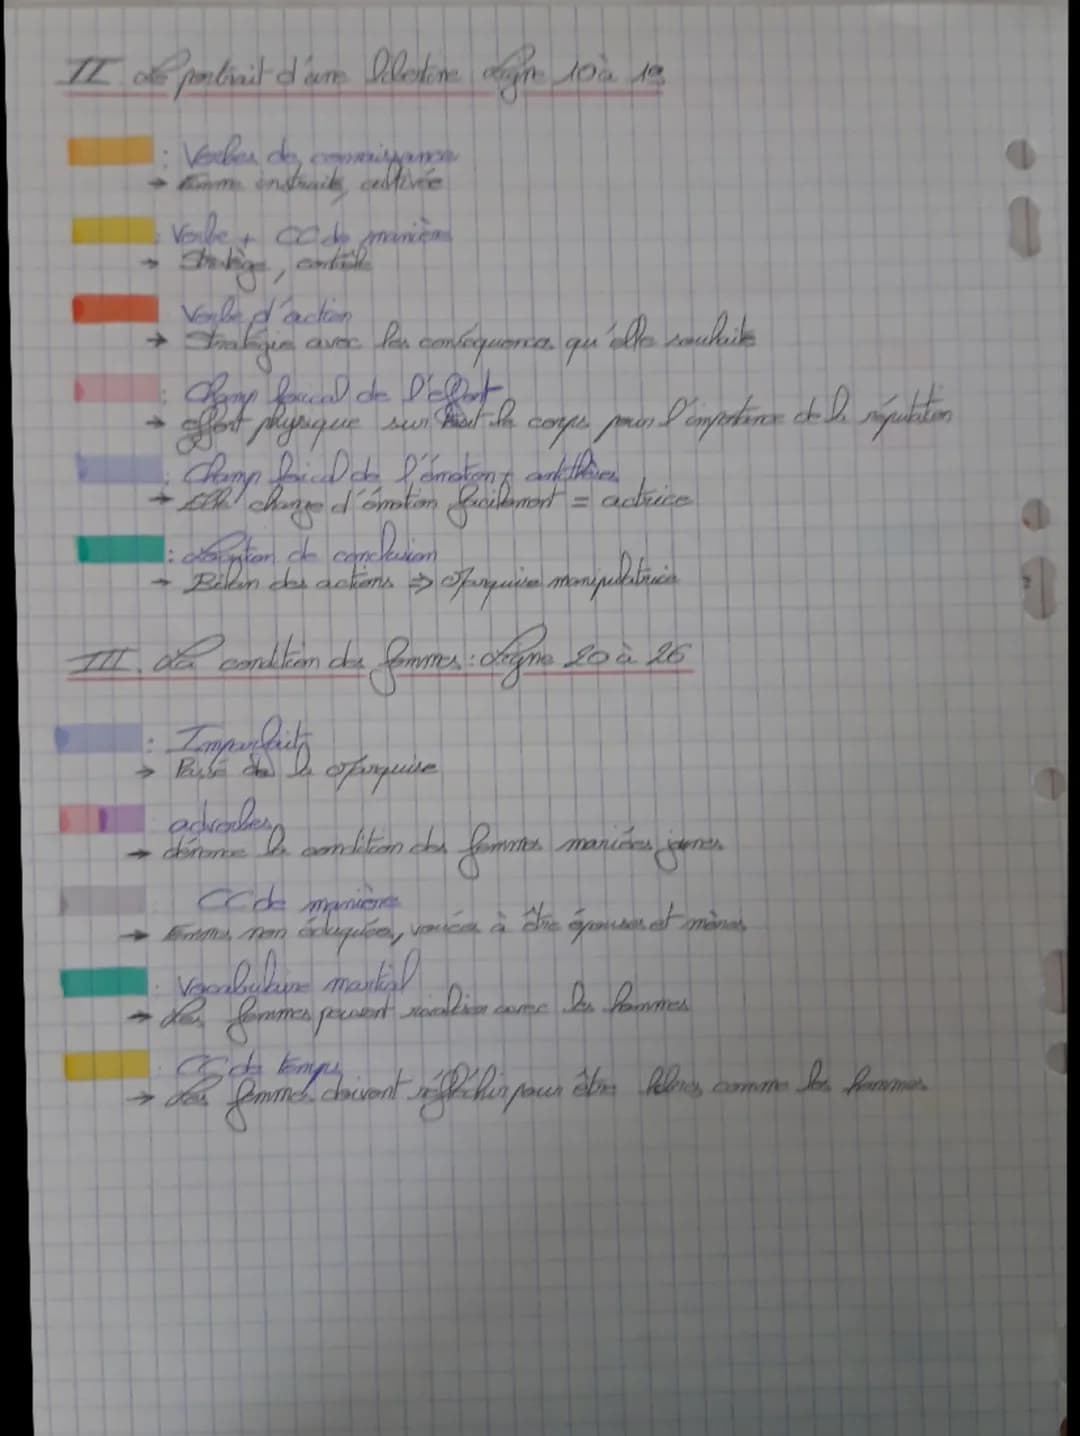 II Le portrait d'une libertine Ligne 10 à 19
: Verbes de connaissance
→ Femme instruite, cultivée
: Verbe + CC de manière
→ Stratège, contrôle
Verbe d'action
→ Stratégie avec les conséquences qu'elle souhaite
: Champ lexical de l'effort
→ effort physique sur tout le corps pour l'importance de la réputation
: Champ lexical de l'émotion + antithèses
→ Elle change d'émotion facilement = actrice
: Locution de conclusion
→ Bilan des actions ⇒ Marquise manipulatrice
III. La condition des femmes : Ligne 20 à 26
: Imparfait
→ Passé de la Marquise
adverbes
→ dénonce la condition des femmes mariées jeunes
CC de manière
→ Femmes non éduquées, vouées à être épouses et mères
: Vocabulaire martial
→ Les femmes peuvent rivaliser avec les hommes
CC de temps
→ Les femmes doivent réfléchir pour être libres comme les hommes